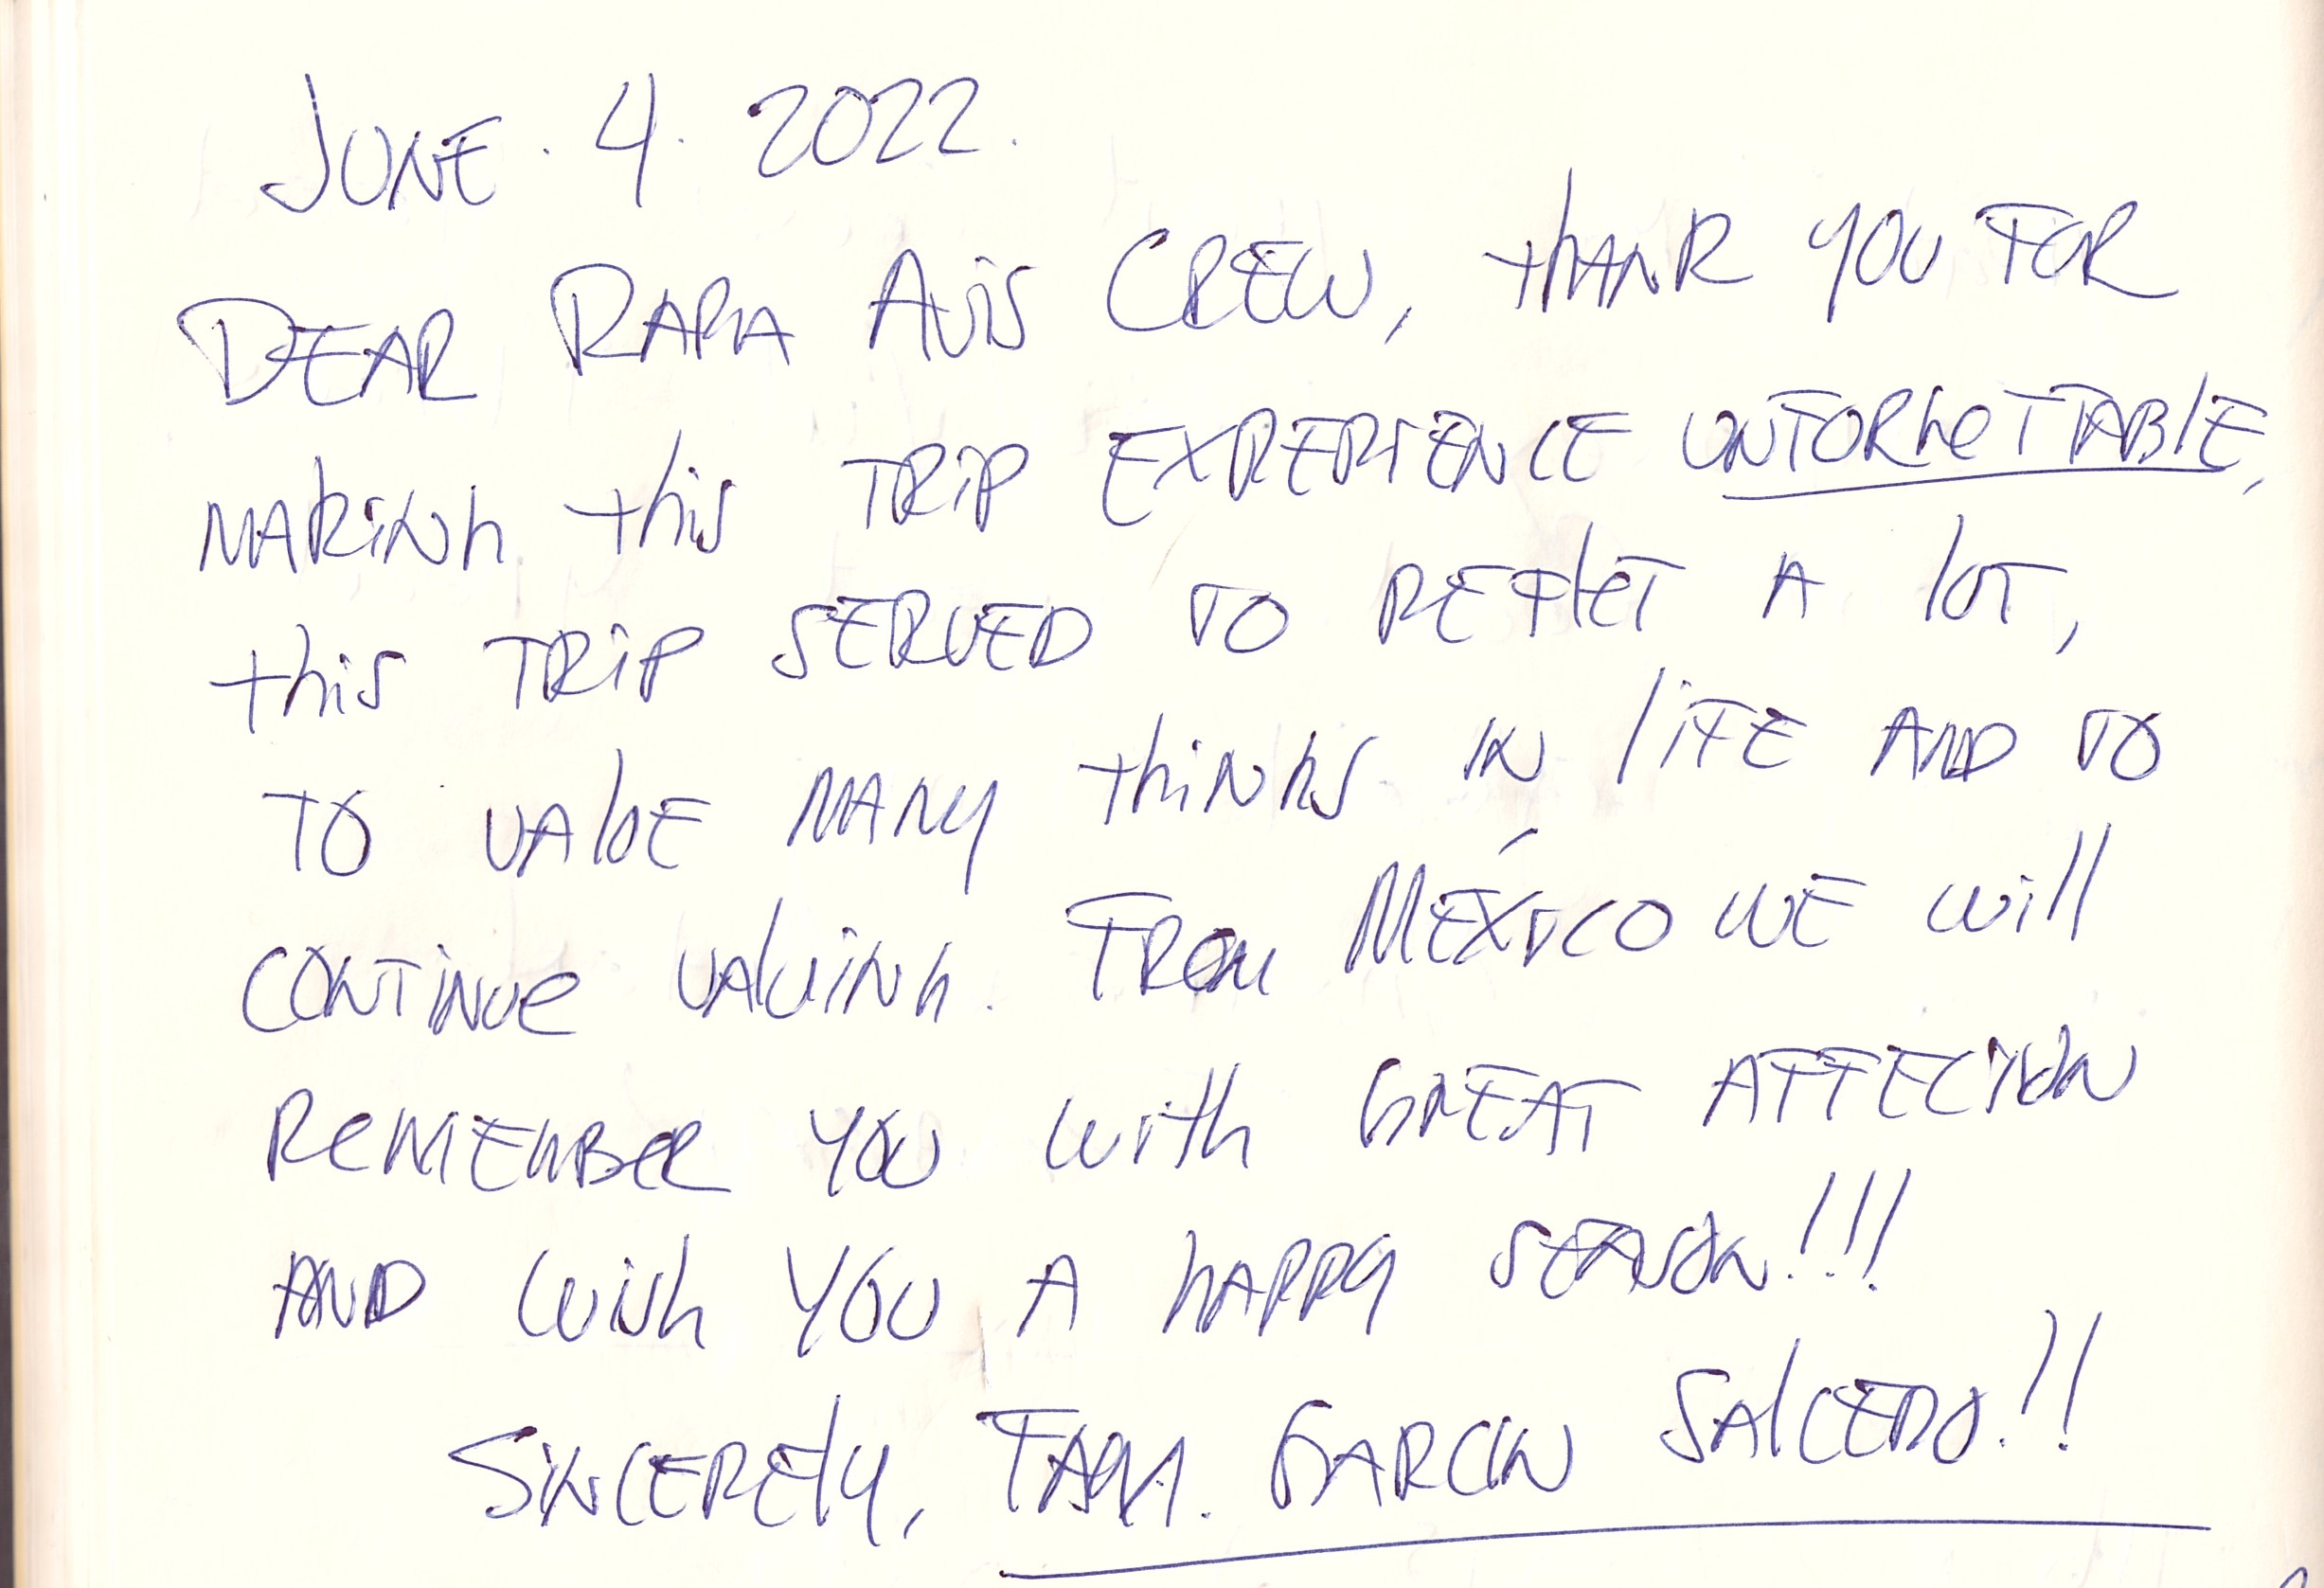 JUNE. 4. 2022.
DEAR RARA AVIS CREW, thANK YOU FOR
MAKiNG this TRiP EXPERIENCE UNFORGeTTABlE,
this TRiP SERVED TO REFleT A lOT,
TO VAlUE MANY thiNGS IN liFE AND TO
CONTiNUe VAlUiNG. FROM MÉXICO WE will
ReMEMBeR YOU with GREAT AFFECTION
AND Wish YOU A hAPPY SEASON!!!
SiNCERElY, FAM. GARCIN SAlCEDO!!